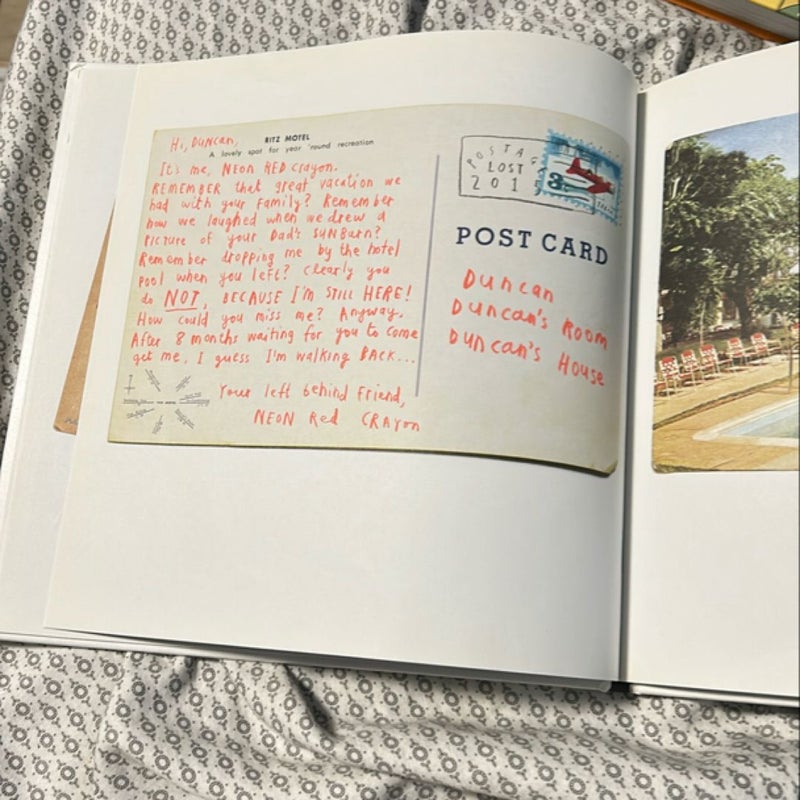 Hi, Duncan,
RITZ MOTEL
A lovely spot for year 'round recreation
It's me, NEON RED crayon.
REMEMBER that great vacation we
had with your family? Remember
how we laughed when we drew a
picture of your Dad's SUNBURN?
Remember dropping me by the hotel
pool when you left? Clearly you
do NOT, BECAUSE I'M STILL HERE!
How could you miss me? Anyway.
After 8 months waiting for you to come
get me, I guess I'm walking BACK...
Your left behind friend,
NEON Red CRAYON
POSTAG
LOST
201
3¢
POST CARD
Duncan
Duncan's Room
Duncan's House